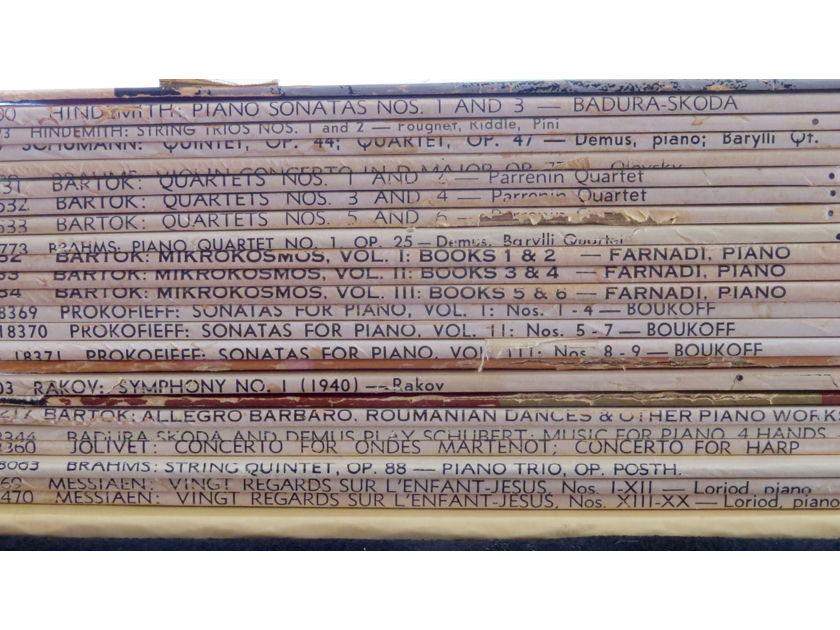 HINDEMITH: PIANO SONATAS NOS. 1 AND 3 — BADURA-SKODA
HINDEMITH: STRING TRIOS NOS. 1 and 2 — Pougnet, Riddle, Pini
SCHUMANN: QUINTET, OP. 44; QUARTET, OP. 47 — Demus, piano; Barylli Qt.
VIOLIN CONCERTO IN D MAJOR OP.
31 BARTOK: QUARTETS NOS. 1 AND 2 — Parrenin Quartet
532 BARTOK: QUARTETS NOS. 3 AND 4 — Parrenin Quartet
533 BARTOK: QUARTETS NOS. 5 AND 6 —
773 BRAHMS: PIANO QUARTET NO. 1 OP. 25 — Demus, Barylli Quartet
BARTOK: MIKROKOSMOS, VOL. I: BOOKS 1 & 2 — FARNADI, PIANO
BARTOK: MIKROKOSMOS, VOL. II: BOOKS 3 & 4 — FARNADI, PIANO
BARTOK: MIKROKOSMOS, VOL. III: BOOKS 5 & 6 — FARNADI, PIANO
8369 PROKOFIEFF: SONATAS FOR PIANO, VOL. I: Nos. 1 - 4 — BOUKOFF
18370 PROKOFIEFF: SONATAS FOR PIANO, VOL. II: Nos. 5 - 7 — BOUKOFF
18371 PROKOFIEFF: SONATAS FOR PIANO, VOL III: Nos. 8 - 9 — BOUKOFF
03 RAKOV: SYMPHONY NO. 1 (1940) — Rakov
BARTOK: ALLEGRO BARBARO, ROUMANIAN DANCES & OTHER PIANO WORK
BADURA SKODA AND DEMUS PLAY SCHUBERT: MUSIC FOR PIANO, 4 HANDS
8360 JOLIVET: CONCERTO FOR ONDES MARTENOT; CONCERTO FOR HARP
BRAHMS: STRING QUINTET, OP. 88 — PIANO TRIO, OP. POSTH.
MESSIAEN: VINGT REGARDS SUR L'ENFANT-JESUS, Nos. I-XII — Loriod, piano
470 MESSIAEN: VINGT REGARDS SUR L'ENFANT-JESUS, Nos. XIII-XX — Loriod, piano